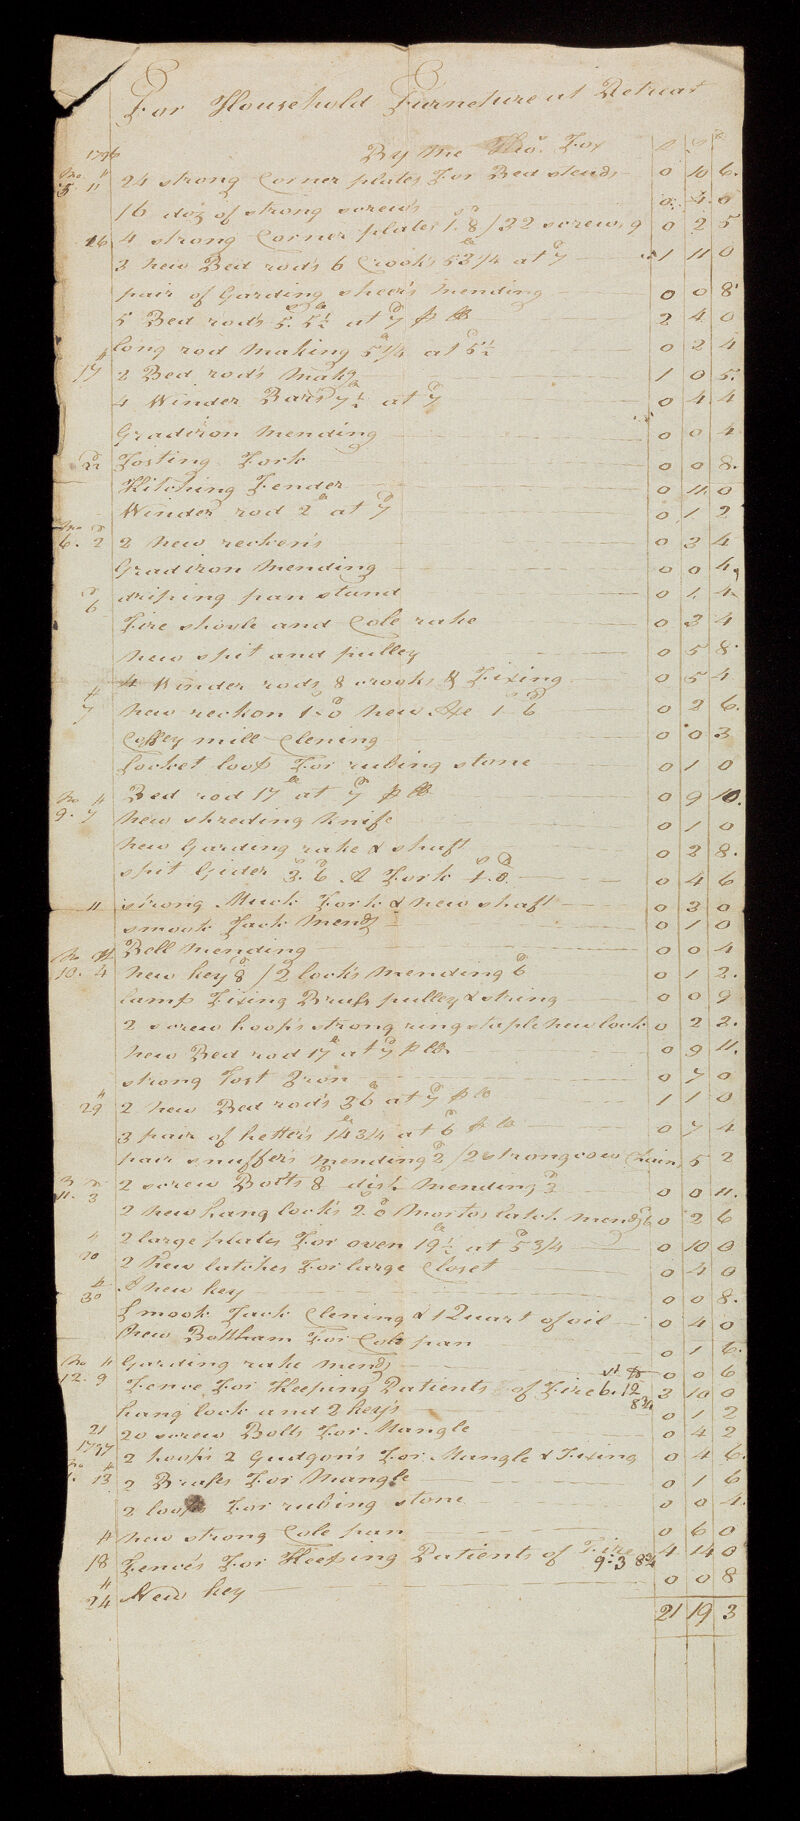 For Household Furneture at Retreat
1796 By me Thos. Fox £ s d
Mo. 5 11 24 strong Corner plates For Bed steads 0 10 6
16 doz of strong screws 0 4 0
16 4 strong Corner plates 1s 8d / 32 screws 9 0 2 5
3 new Bed rods 6 Crooks 53 1/4 at 7d 1 11 0
pair of Garding sheers mending 0 0 8
5 Bed rods at 7d p lb 2 4 0
long rod making 5 1/4 at 5d 1/2 0 2 4
17 2 Bed rods making 1 0 5
4 Winder Bars 7 1/2 at 7d 0 4 4
Gradiron mending 0 0 4
22 Tosting Fork 0 0 8
Kitching Fender 0 11 0
Winder rod 2 lb at 7d 0 1 2
Mo 6. 2 2 new recken's 0 3 4
Gradiron mending 0 0 4
6 driping pan stand 0 1 4
Fire shovle and Cole rake 0 3 4
new spit and pulley 0 5 8
4 Winder rods 8 crooks & Fixing 0 5 4
7 new reckon 1s-0d new Axe 1s 6d 0 2 6
Coffey mill Clening 0 0 3
Socket loop For rubing stone 0 1 0
Mo 9. 7 Bed rod 17 lb at 7d p lb 0 9 10
new shreding knife 0 1 0
new Garding rake & shaft 0 2 8
spit Gider 3s. 6d A Fork 1s. 0d 0 4 6
11 strong Muck Fork & new shaft 0 3 0
smook Jack mendg 0 1 0
Bell mending 0 0 4
Mo 10. 4 new key 8d / 2 lock's mending 6d 0 1 2
lamp Fixing Brass pulley & string 0 0 9
2 screw hoops strong ring staple new lock 0 2 2
new Bed rod 17 lb at 7d p lb 0 9 11
strong Tost Iron 0 7 0
29 2 new Bed rod's 36 at 7d p lb 1 1 0
3 pair of hetter's 14 3/4 at 6d p lb 0 7 4
pair snuffer's mending 2d / 2 strong cow Chains 5 2
11. 3 2 screw Bolts 8d dish mending 3d 0 0 11
2 new hang lock's 2s 0d latch mendg 6 0 2 6
20 2 large plates For oven 19 1/2 at 5d 3/4 0 10 0
2 new latches For large Closet 0 4 0
30 A new key 0 0 8
Smook Jack Clening & 1 Quart of oil 0 4 0
New Bottham For Cole pan 0 1 6
Mo 12. 9 Garding rake mendg 0 0 6
Fence For Keeping Patients of Fire 6. 12 8 3/4 3 10 0
hang lock and 2 key's 0 1 2
21 20 screw Bolts For Mangle 0 4 2
1797 2 hoop's 2 Gudgon's For Mangle & Fixing 0 4 6
Mo 1. 13 2 Brases For Mangle 0 1 6
2 loops For rubing stone 0 0 4
new strong Cole pan 0 6 0
18 Fence's For Keeping Patients of Fire 9. 3 8 3/4 4 14 0
24 New key 0 0 8
21 19 3